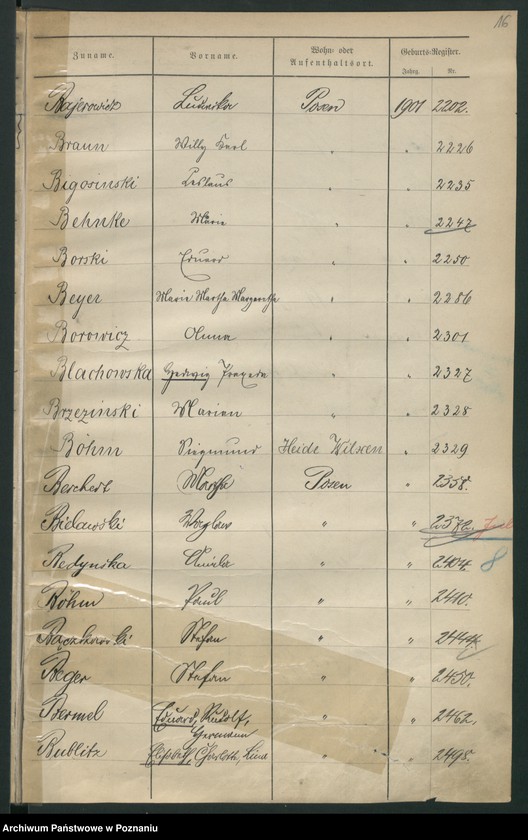 16
Zuname. Vorname. Wohn- oder Aufenthaltsort. Geburts-Register.
Jahrg. Nr.
Bajerowicz Ludwika Posen 1901 2202.
Braun Willy Karl " " 2226
Bigosinski Ceslaus " " 2235
Behnke Marie " " 2247
Borski Eduard " " 2250
Beyer Marie Martha Margarethe " " 2286
Borowicz Anna " " 2301
Blachowska Hedwig Praxeda " " 2327
Brzezinski Marian " " 2328
Böhm Siegmund Heide Wilxen " 2329
Berchert Martha Posen " 2358.
Bidawski Waclaw " " 2372.
Redynska Aniela " " 2404.
8
Böhm Paul " " 2410.
Bączkowski Stefan " " 2444.
Beger Stefan " " 2450.
Bermel Eduard, Rudolf, Hermann " " 2462.
Bublitz Elisabeth, Charlotte, " " 2498.
Archiwum Państwowe w Poznaniu